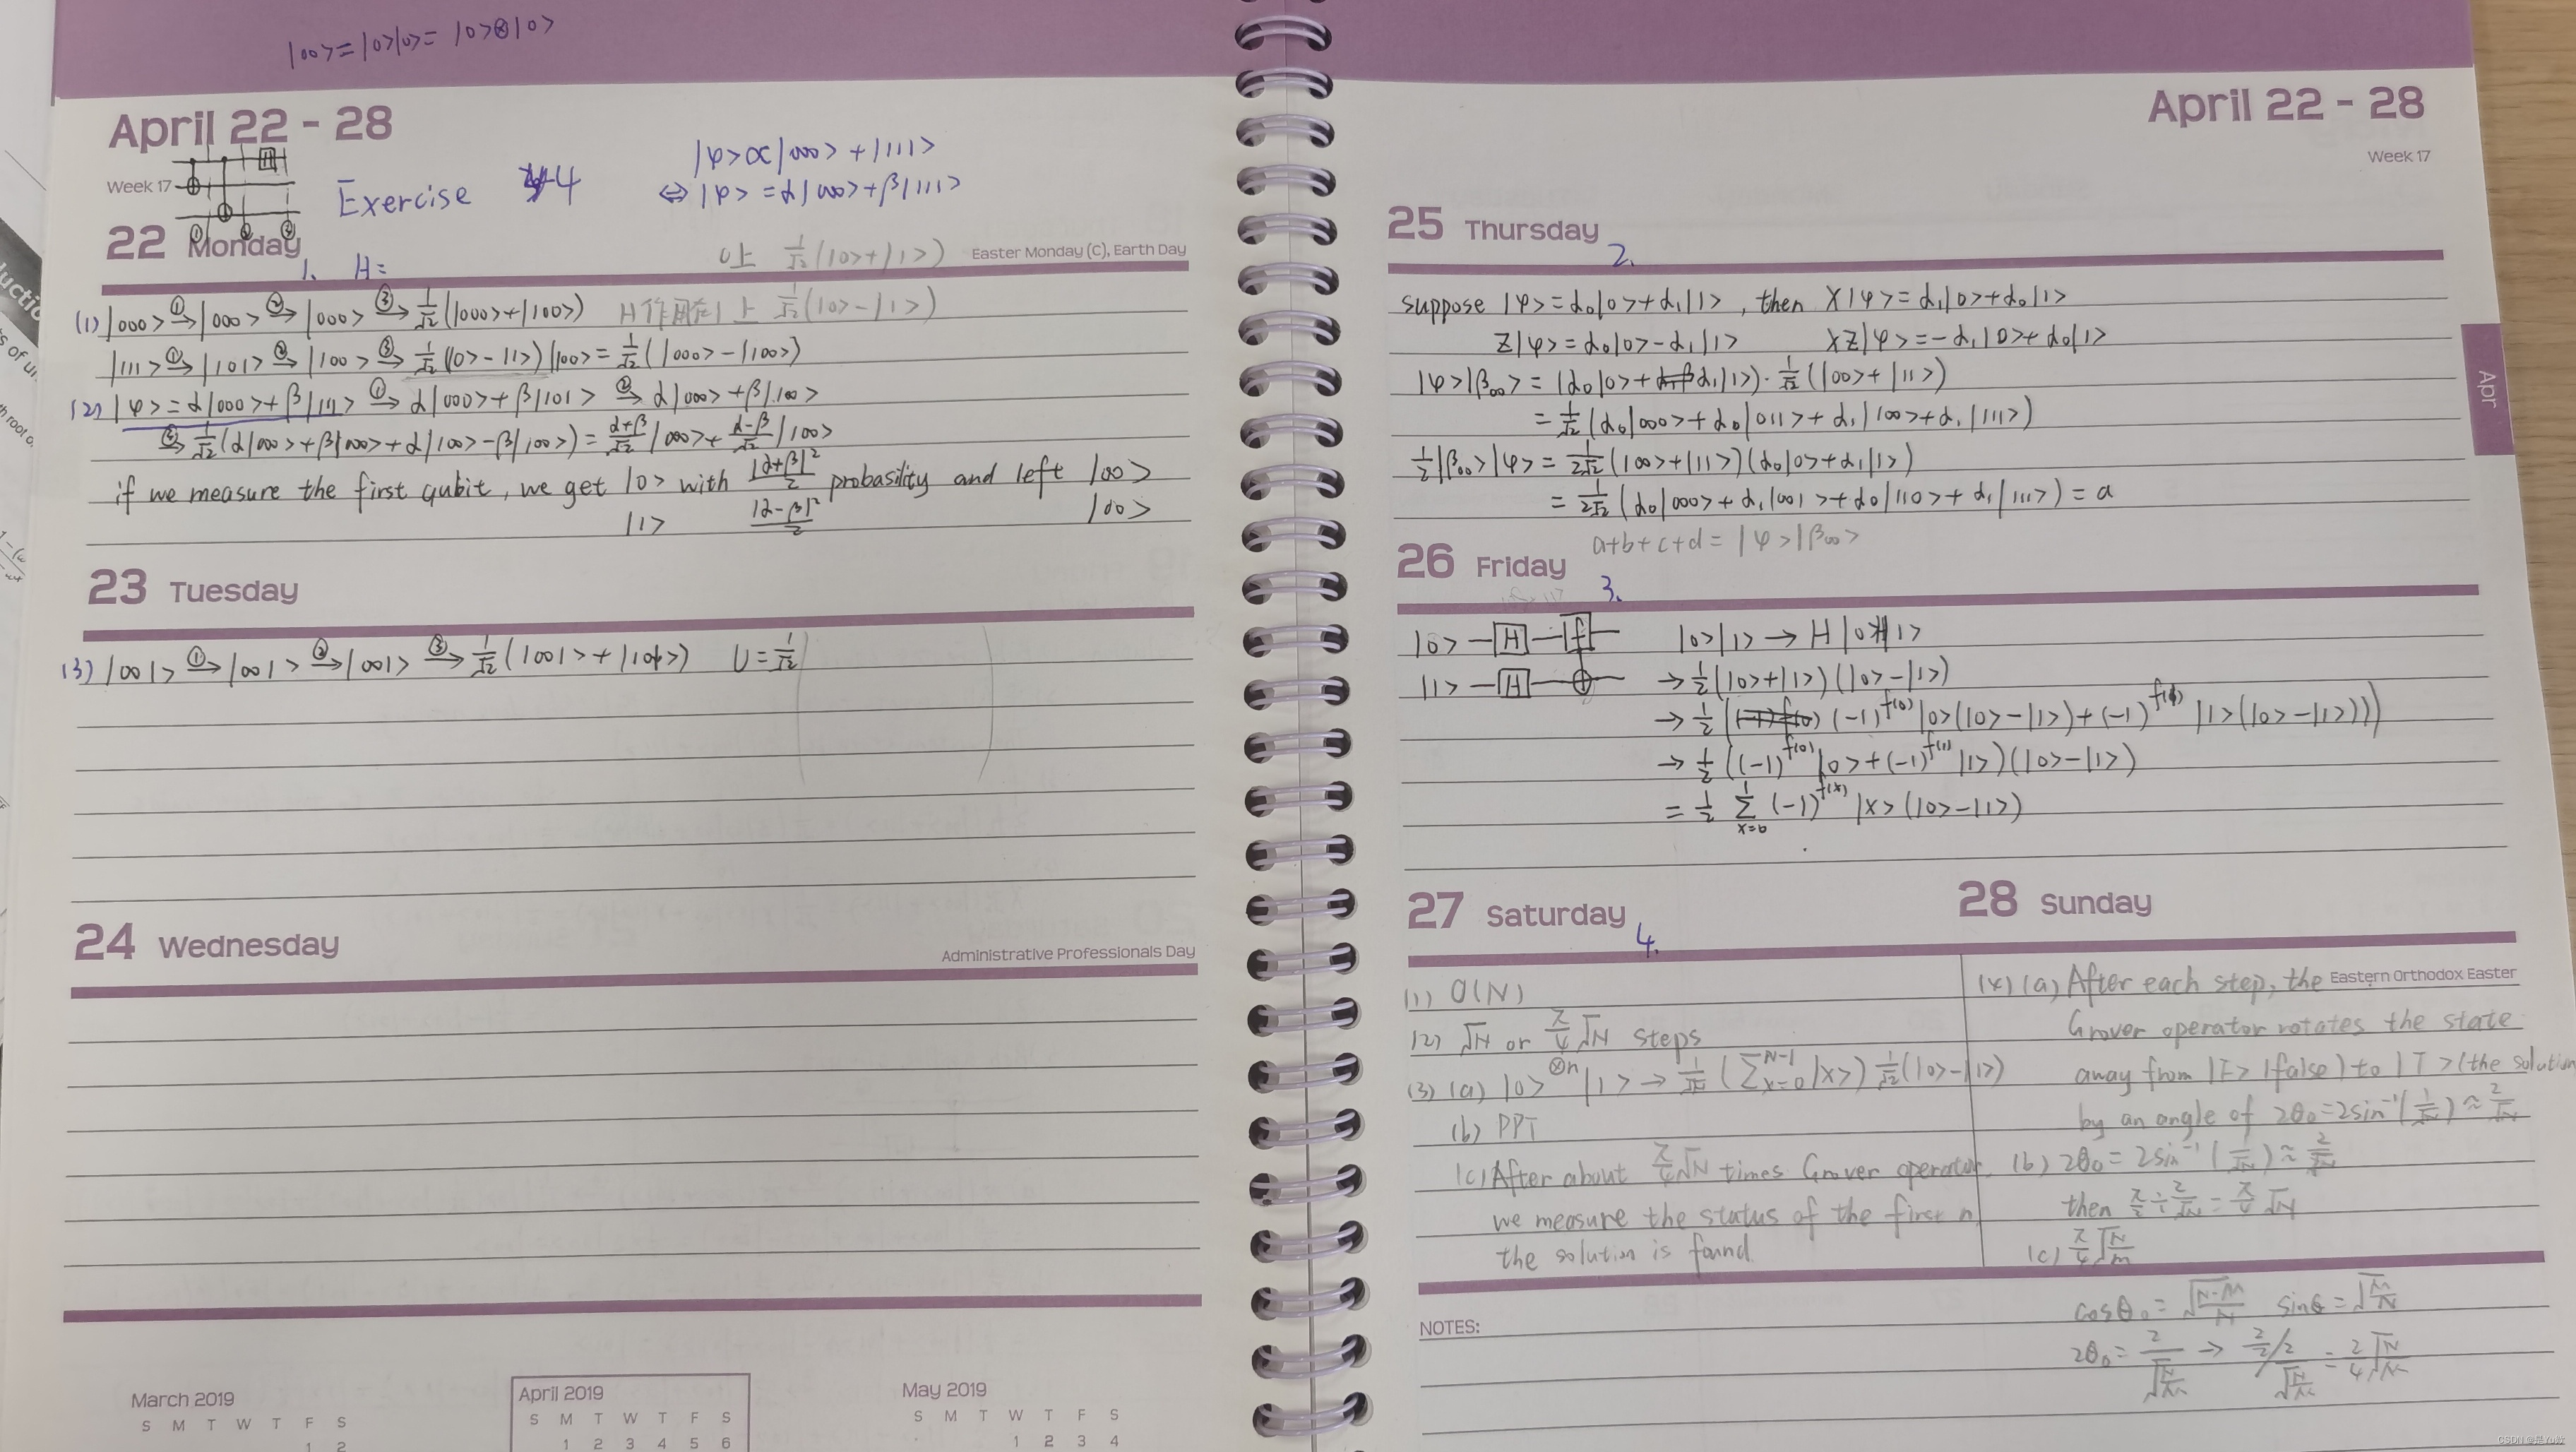 |00> = |0>|0> = |0>⊗|0>
April 22 - 28
Week 17
Exercise 4
|φ> ∝ |000> + |111>
⇔ |φ> = α|000> + β|111>
22 Monday
Easter Monday (C), Earth Day
1. H=
0上 1/√2 (|0>+|1>)
(1) |000> ①→ |000> ②→ |000> ③→ 1/√2 (|000>+|100>) H作用在1上 1/√2 (|0>-|1>)
|111> ①→ |101> ②→ |100> ③→ 1/√2 (|0>-|1>)|00> = 1/√2 (|000>-|100>)
(2) |φ> = α|000> + β|111> ①→ α|000> + β|101> ②→ α|000> + β|100>
③→ 1/√2 (α|000> + β|000> + α|100> - β|100>) = (α+β)/√2 |000> + (α-β)/√2 |100>
if we measure the first qubit, we get |0> with |α+β|²/2 probasility and left |00>
|1> |α-β|²/2 |00>
23 Tuesday
(3) |001> ①→ |001> ②→ |001> ③→ 1/√2 (|001> + |101>) U = 1/√2 ( )
24 Wednesday
Administrative Professionals Day
March 2019
S M T W T F S
1 2
April 2019
S M T W T F S
1 2 3 4 5 6
May 2019
S M T W T F S
1 2 3 4
April 22 - 28
Week 17
Apr
25 Thursday
2.
suppose |φ> = α₀|0> + α₁|1>, then X|φ> = α₁|0> + α₀|1>
Z|φ> = α₀|0> - α₁|1> XZ|φ> = -α₁|0> + α₀|1>
|φ>|β₀₀> = (α₀|0> + α₁|1>) · 1/√2 (|00> + |11>)
= 1/√2 (α₀|000> + α₀|011> + α₁|100> + α₁|111>)
1/2 |β₀₀>|φ> = 1/2√2 (|00> + |11>)(α₀|0> + α₁|1>)
= 1/2√2 (α₀|000> + α₁|001> + α₀|110> + α₁|111>) = a
a+b+c+d = |φ>|β₀₀>
26 Friday
3.
|0> H f |0>|1> → H|0>H|1>
|1> H → 1/2 (|0>+|1>)(|0>-|1>)
→ 1/2 ((-1)^f(0) |0>(|0>-|1>) + (-1)^f(1) |1>(|0>-|1>)))
→ 1/2 ((-1)^f(0) |0> + (-1)^f(1) |1>)(|0>-|1>)
= 1/2 Σ_{x=0}^{1} (-1)^f(x) |x>(|0>-|1>)
27 Saturday
4.
(1) O(N)
(2) √N or π/4 √N steps
(3) (a) |0>^⊗n |1> → 1/√N (Σ_{x=0}^{N-1} |x>) 1/√2 (|0>-|1>)
(b) PPT
(c) After about π/4 √N times Grover operator,
we measure the status of the first n,
the solution is found.
28 Sunday
Eastern Orthodox Easter
(4) (a) After each step, the
Grover operator rotates the state
away from |F> (false) to |T> (the solution
by an angle of 2θ₀ = 2sin⁻¹(1/√N) ≈ 2/√N
(b) 2θ₀ = 2sin⁻¹(1/√N) ≈ 2/√N
then π/2 ÷ 2/√N = π/4 √N
(c) π/4 √(N/m)
NOTES:
cosθ₀ = √((N-M)/N) sinθ = √(M/N)
2θ₀ = 2/√(N/M) → π/2 / 2/√(N/M) = π/4 √(N/M)
CSDN @是Yu欸